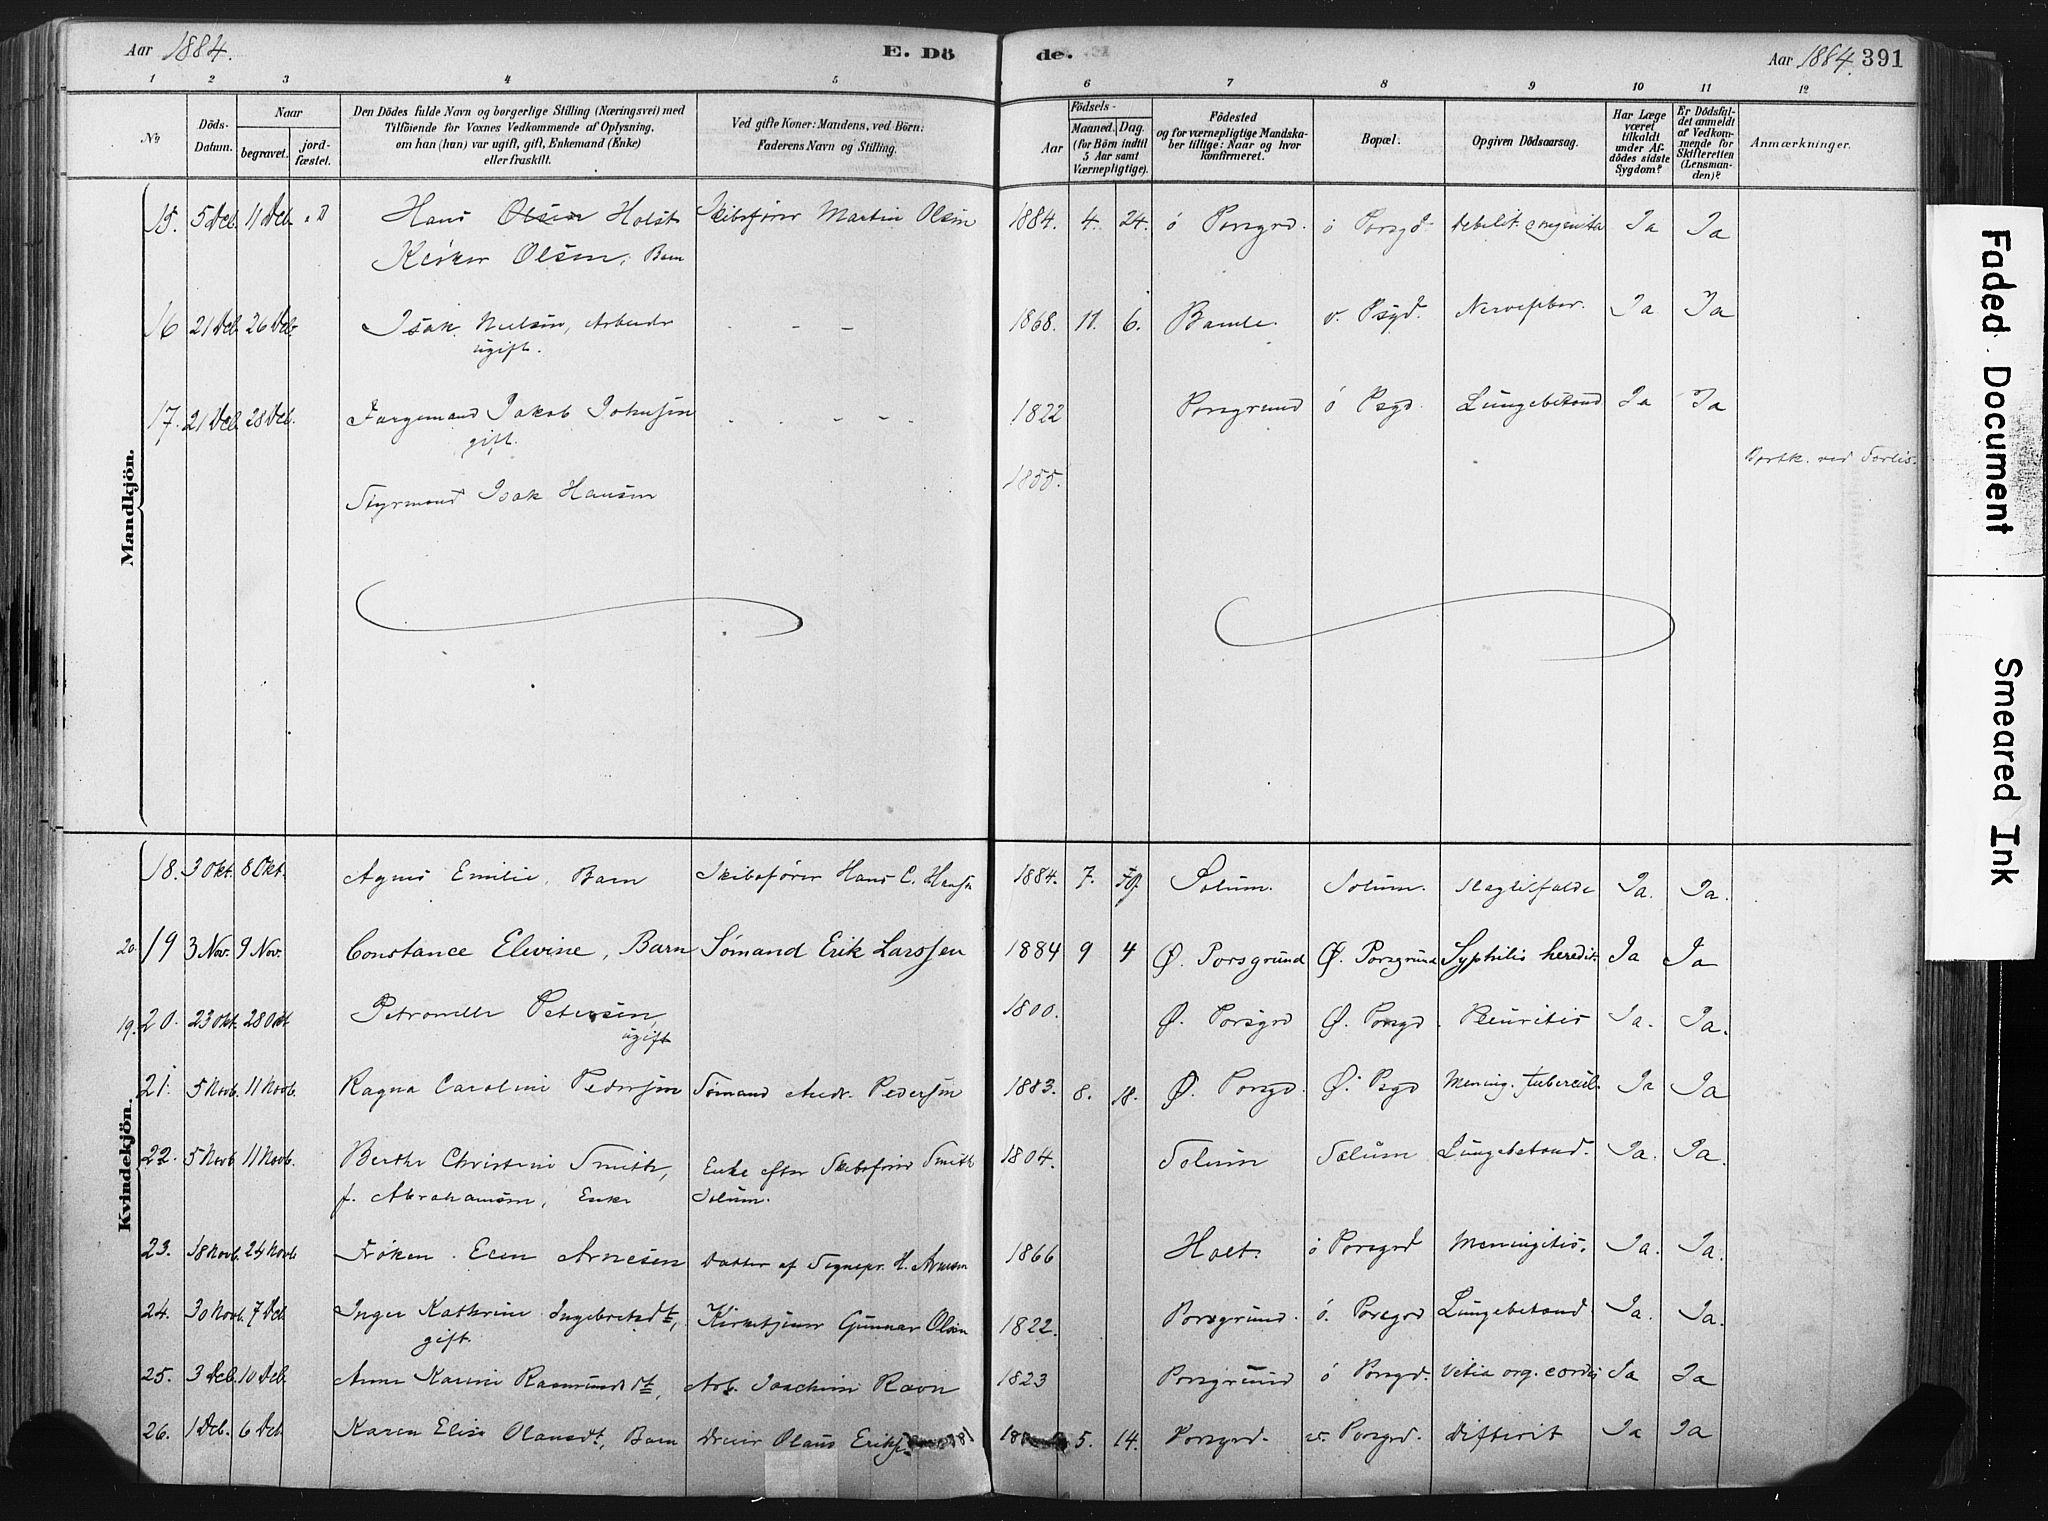 Aar 1884.
E. Dö
de.
Aar 1884. 391
1 2 3 4 5 6 7 8 9 10 11 12
No
Döds-Datum.
Naar
begravet.
jord-fæstet.
Den Dödes fulde Navn og borgerlige Stilling (Næringsvei) med
Tilföiende for Voxnes Vedkommende af Oplysning,
om han (hun) var ugift, gift, Enkemand (Enke)
eller fraskilt.
Ved gifte Koner: Mandens, ved Börn:
Faderens Navn og Stilling.
Födsels-
Aar
Maaned. Dag.
(for Börn indtil
5 Aar samt
Værnepligtige).
Födested
og for værnepligtige Mandska-
ber tillige: Naar og hvor
konfirmeret.
Bopæl.
Opgiven Dödsaarsag.
Har Læge
været
tilkaldt
under Af-
dödes sidste
Sygdom?
Er Dödsfal-
det anmeldt
af Vedkom-
mende for
Skifteretten
(Lensman-
den)?
Anmærkninger.
Mandkjön.
15. 5 Deb. 11 Deb. Hans Olsen Holst Skibsfører Martin Olsen 1884. 4. 24. ø Porsgrd. ø Porsgd. Debilit. congenita Ja Ja
Kerker Olsen, Barn
16 21 Deb. 26 Deb. Isak Nielsen, Arbeider - - - 1868. 11. 6. Bamle. v. Psgd. Nervefeber. Ja Ja
ugift.
17. 21 Deb. 28 Deb. Fargemand Jakob Johnsen - - - - 1822 Porsgrund ø Psgd. Lungebetænd Ja Ja
gift.
Bortk. ved Forlis.
Styrmand Isak Hansen 1855.
Kvindekjön.
18. 3 Okt. 8 Okt. Agnes Emilie, Barn Skibsfører Hans C. Hansen 1884. 7. Solum. Solum. Slagtilfælde Ja. Ja.
20. 19 3 Nov. 9 Nov. Constance Elvine, Barn Sømand Erik Larssen 1884 9 4 Ø. Porsgrund Ø. Porsgrund Syphilis heredit. Ja Ja
19. 20. 23 Okt. 28 Okt Petronelle Petersen, 1800. Ø. Porsgrd Ø. Porsgd. Pleuritis Ja. Ja.
ugift
21. 5 Novb. 11 Novb. Ragna Caroline Pedersen Sømand Andr. Pedersen 1883. 8. 18. Ø. Porsgd. Ø. Psgd Mening. tubercul. Ja Ja
22. 5 Novb 11 Novb. Berthe Christine Smith, Enke efter Skibsfører Smith 1804. Solum Solum Lungebetænd. Ja. Ja.
f. Abrahamsen, Enke Solum.
23. 18 Novb. 24 Novb Frøken Ecen Arnesen Datter af Sognepr. H. Arnesen 1866 Holt. ø Porsgrd Meningitis. Ja. Ja.
24. 30 Novb. 7 Deb Inger Kathrine Ingebretsdt, Kirketjener Gunnar Olsen 1822. Porsgrund. ø. Porsgrd Lungebetænd Ja. Ja.
gift.
25. 3 Deb. 10 Deb. Anne Karine Rasmusdt, Arb. Joachim Ravn 1823 Porsgrund ø Porsgd. Vitia org. cordis Ja Ja
26. 1 Deb. 6 Deb Karen Elise Olausdt, Barn Dreier Olaus 5. 14. Porsgrd. v. Porsgrd. Difterit Ja Ja
Faded Document
Smeared Ink